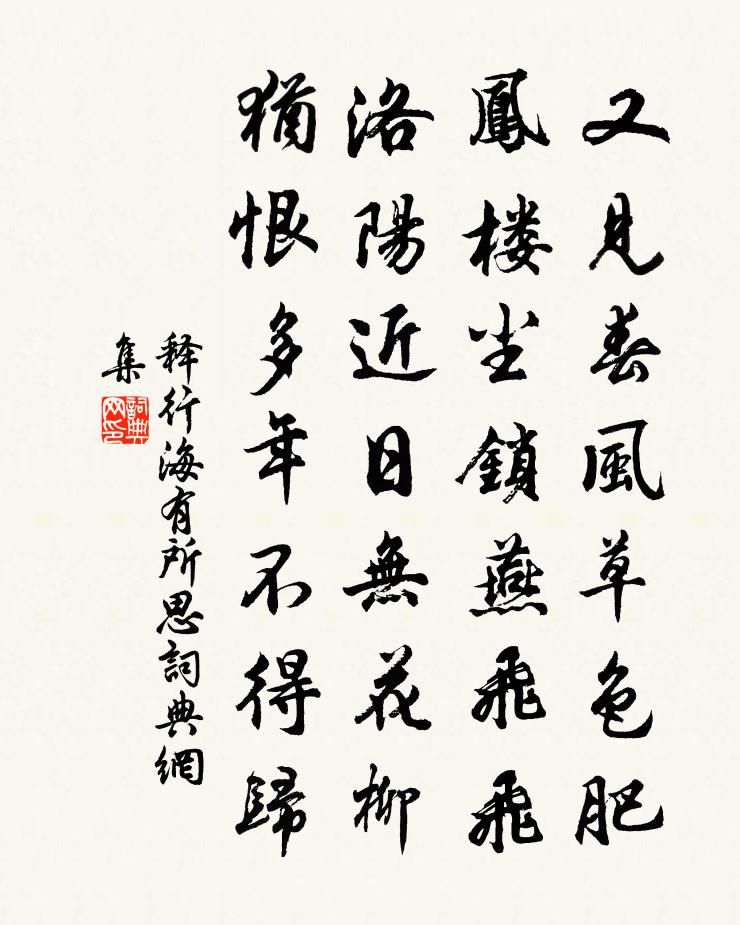 又見春風草色肥
鳳楼尘鎖燕飛飛
洛陽近日無花柳
猶恨多年不得歸
释行海有所思詞典網
集
詞典网印